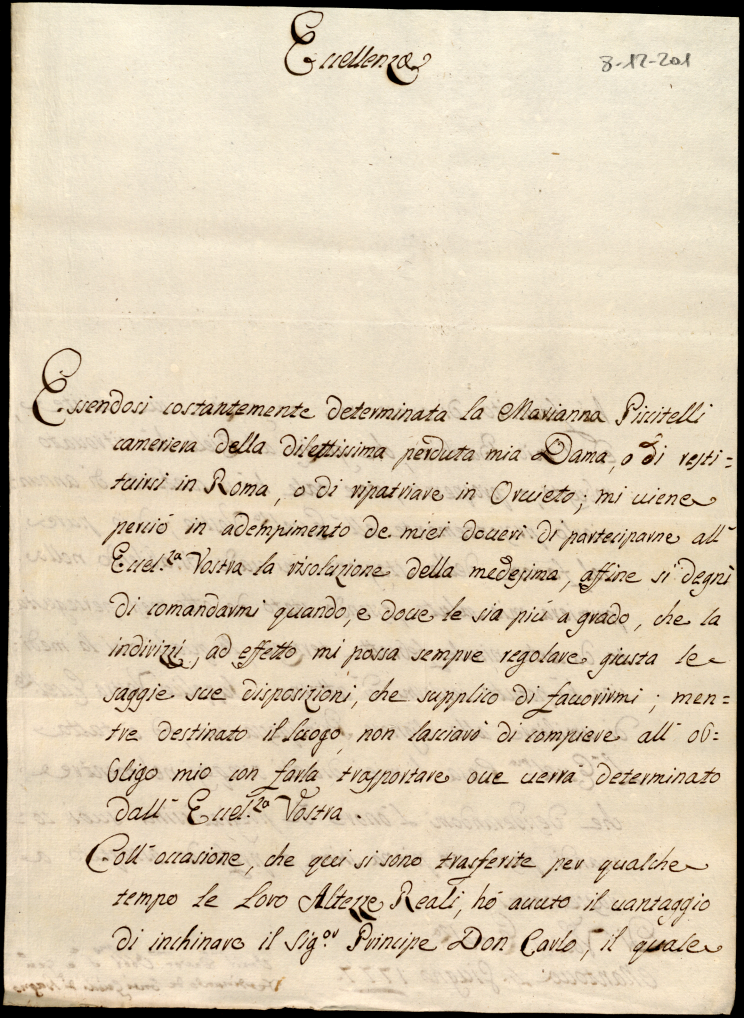 Eccellenza
8-12-201
Essendosi costantemente determinata la Marianna Piscitelli
cameriera della dilettissima perduta mia Dama, o di resti=
tuirsi in Roma, o di ripatriare in Orvieto; mi viene
perciò in adempimento de miei doveri di parteciparne all'
Eccel.za Vostra la risoluzione della medesima, affine si degni
di comandarmi quando, e dove le sia più a grado, che la
indirizzi, ad effetto mi possa sempre regolare giusta le
saggie sue disposizioni, che supplico di favorirmi; men=
tre destinato il luogo, non lasciarò di compiere all' ob=
bligo mio con farla trasportare ove verrà determinato
dall' Eccel.za Vostra.
Coll' occasione, che qui si sono trasferite per qualche
tempo le Loro Altezze Reali, hò avuto il vantaggio
di inchinare il Sig.or Principe Don Carlo, il quale